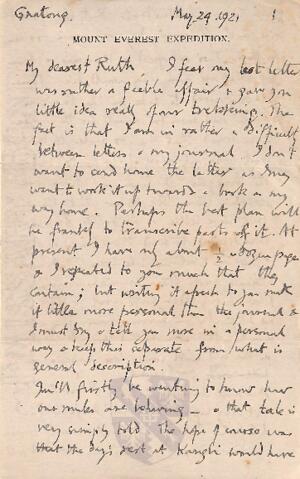 Gnatong. May 24, 1921 1
MOUNT EVEREST EXPEDITION.
My dearest Ruth I fear my best letter
was rather a feeble affair & gave you
little idea really of our trekking. The
fact is that I am in rather a difficulty
between letters & my journal. I don't
want to send home the latter as I may
want to work it up towards a book on my
way home. Perhaps the best plan will
be frankly to transcribe parts of it. At
present I have only about 2 dozen pages
& I repeated to you much that they
contain; but writing it afresh to you makes
it little more personal than the journal &
I must try & tell you more in a personal
way & keep this separate from what is
general description.
You'll firstly be wanting to know how
our mules are behaving — & that tale is
very simply told. The hope of course was
that the day's rest at would have